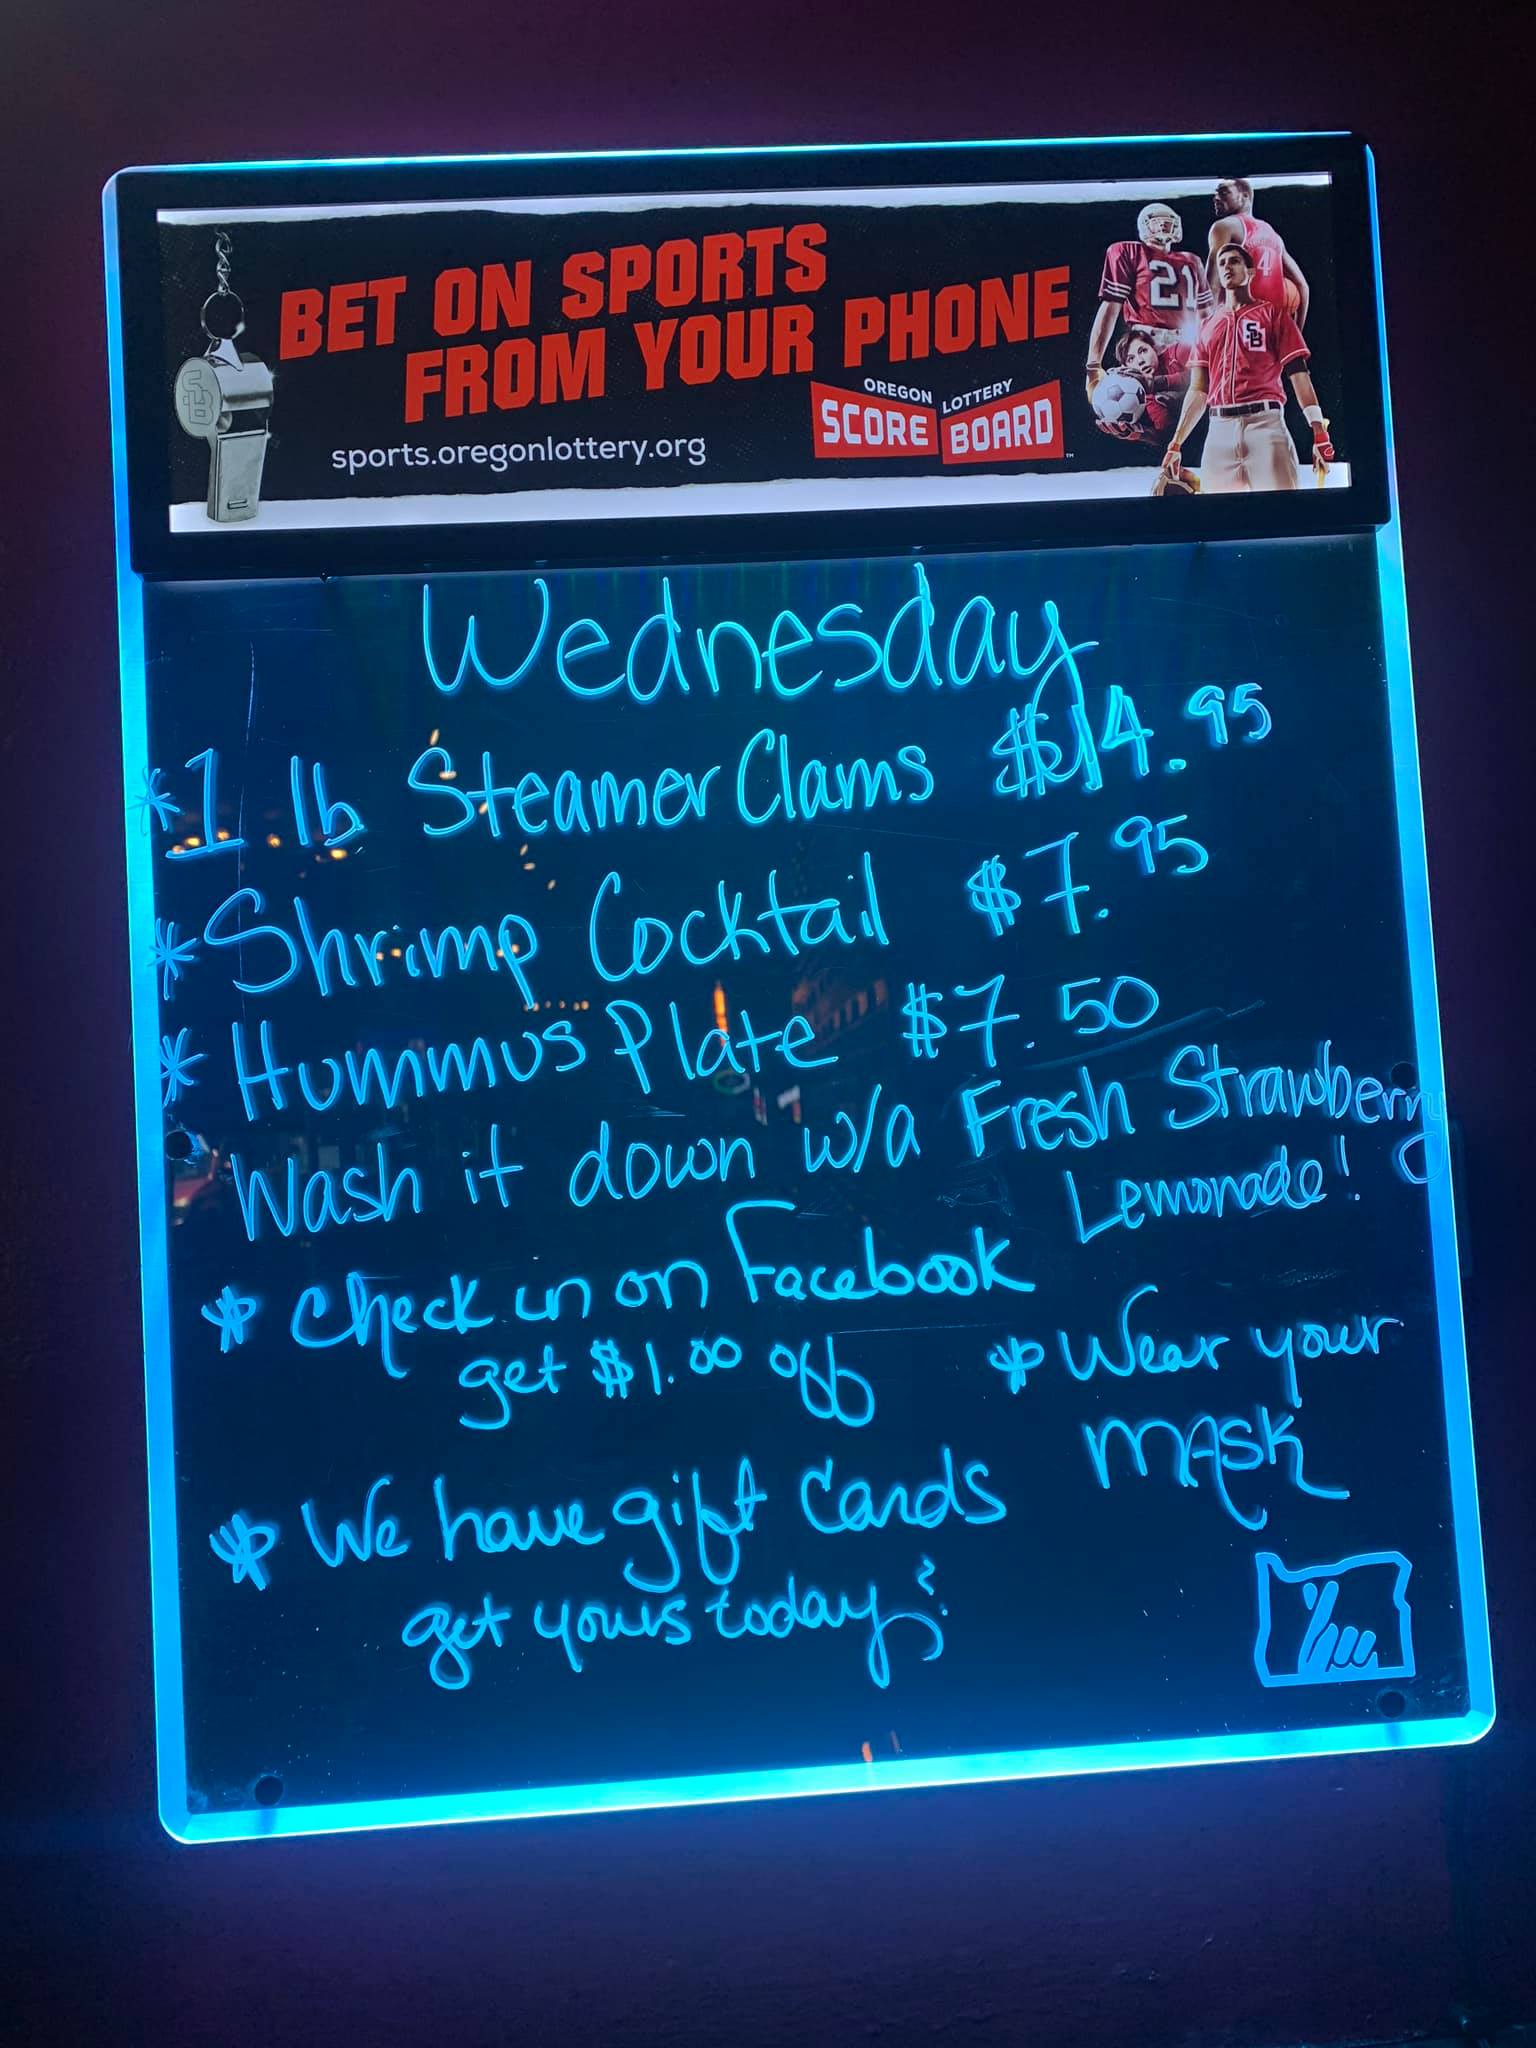 BET ON SPORTS
FROM YOUR PHONE
sports.oregonlottery.org
OREGON LOTTERY
SCORE BOARD™
21
4
SB
SB
Wednesday
*1 lb Steamer Clams $14.95
*Shrimp Cocktail $7.95
*Hummus Plate $7.50
Wash it down w/a Fresh Strawberry
Lemonade!
* Check in on Facebook
get $1.00 off
* Wear your
MASK
* We have gift Cards
get yours today!